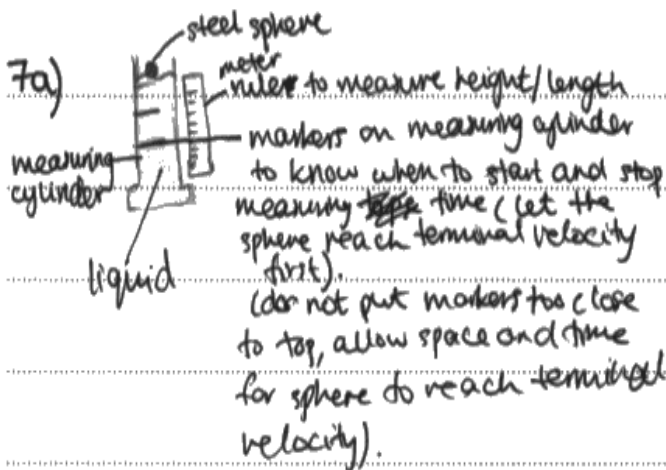 steel sphere
7a)
meter
ruler to measure height/length
markers on measuring cylinder
measuring
cylinder
to know when to start and stop
measuring time (let the
sphere reach terminal velocity
first).
liquid
(do not put markers too close
to top, allow space and time
for sphere to reach terminal
velocity).